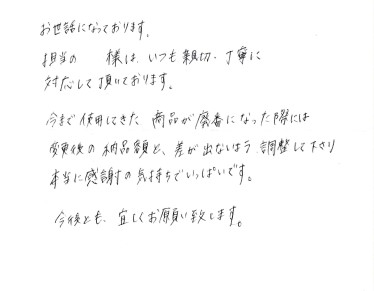 お世話になっております。
担当の　　様は、いつも親切、丁寧に
対応して頂いております。
今まで使用してきた 商品が廃番になった際には
変更後の納品額と、差が出ないよう 調整して下さり
本当に感謝の気持ちでいっぱいです。
今後とも、宜しくお願い致します。